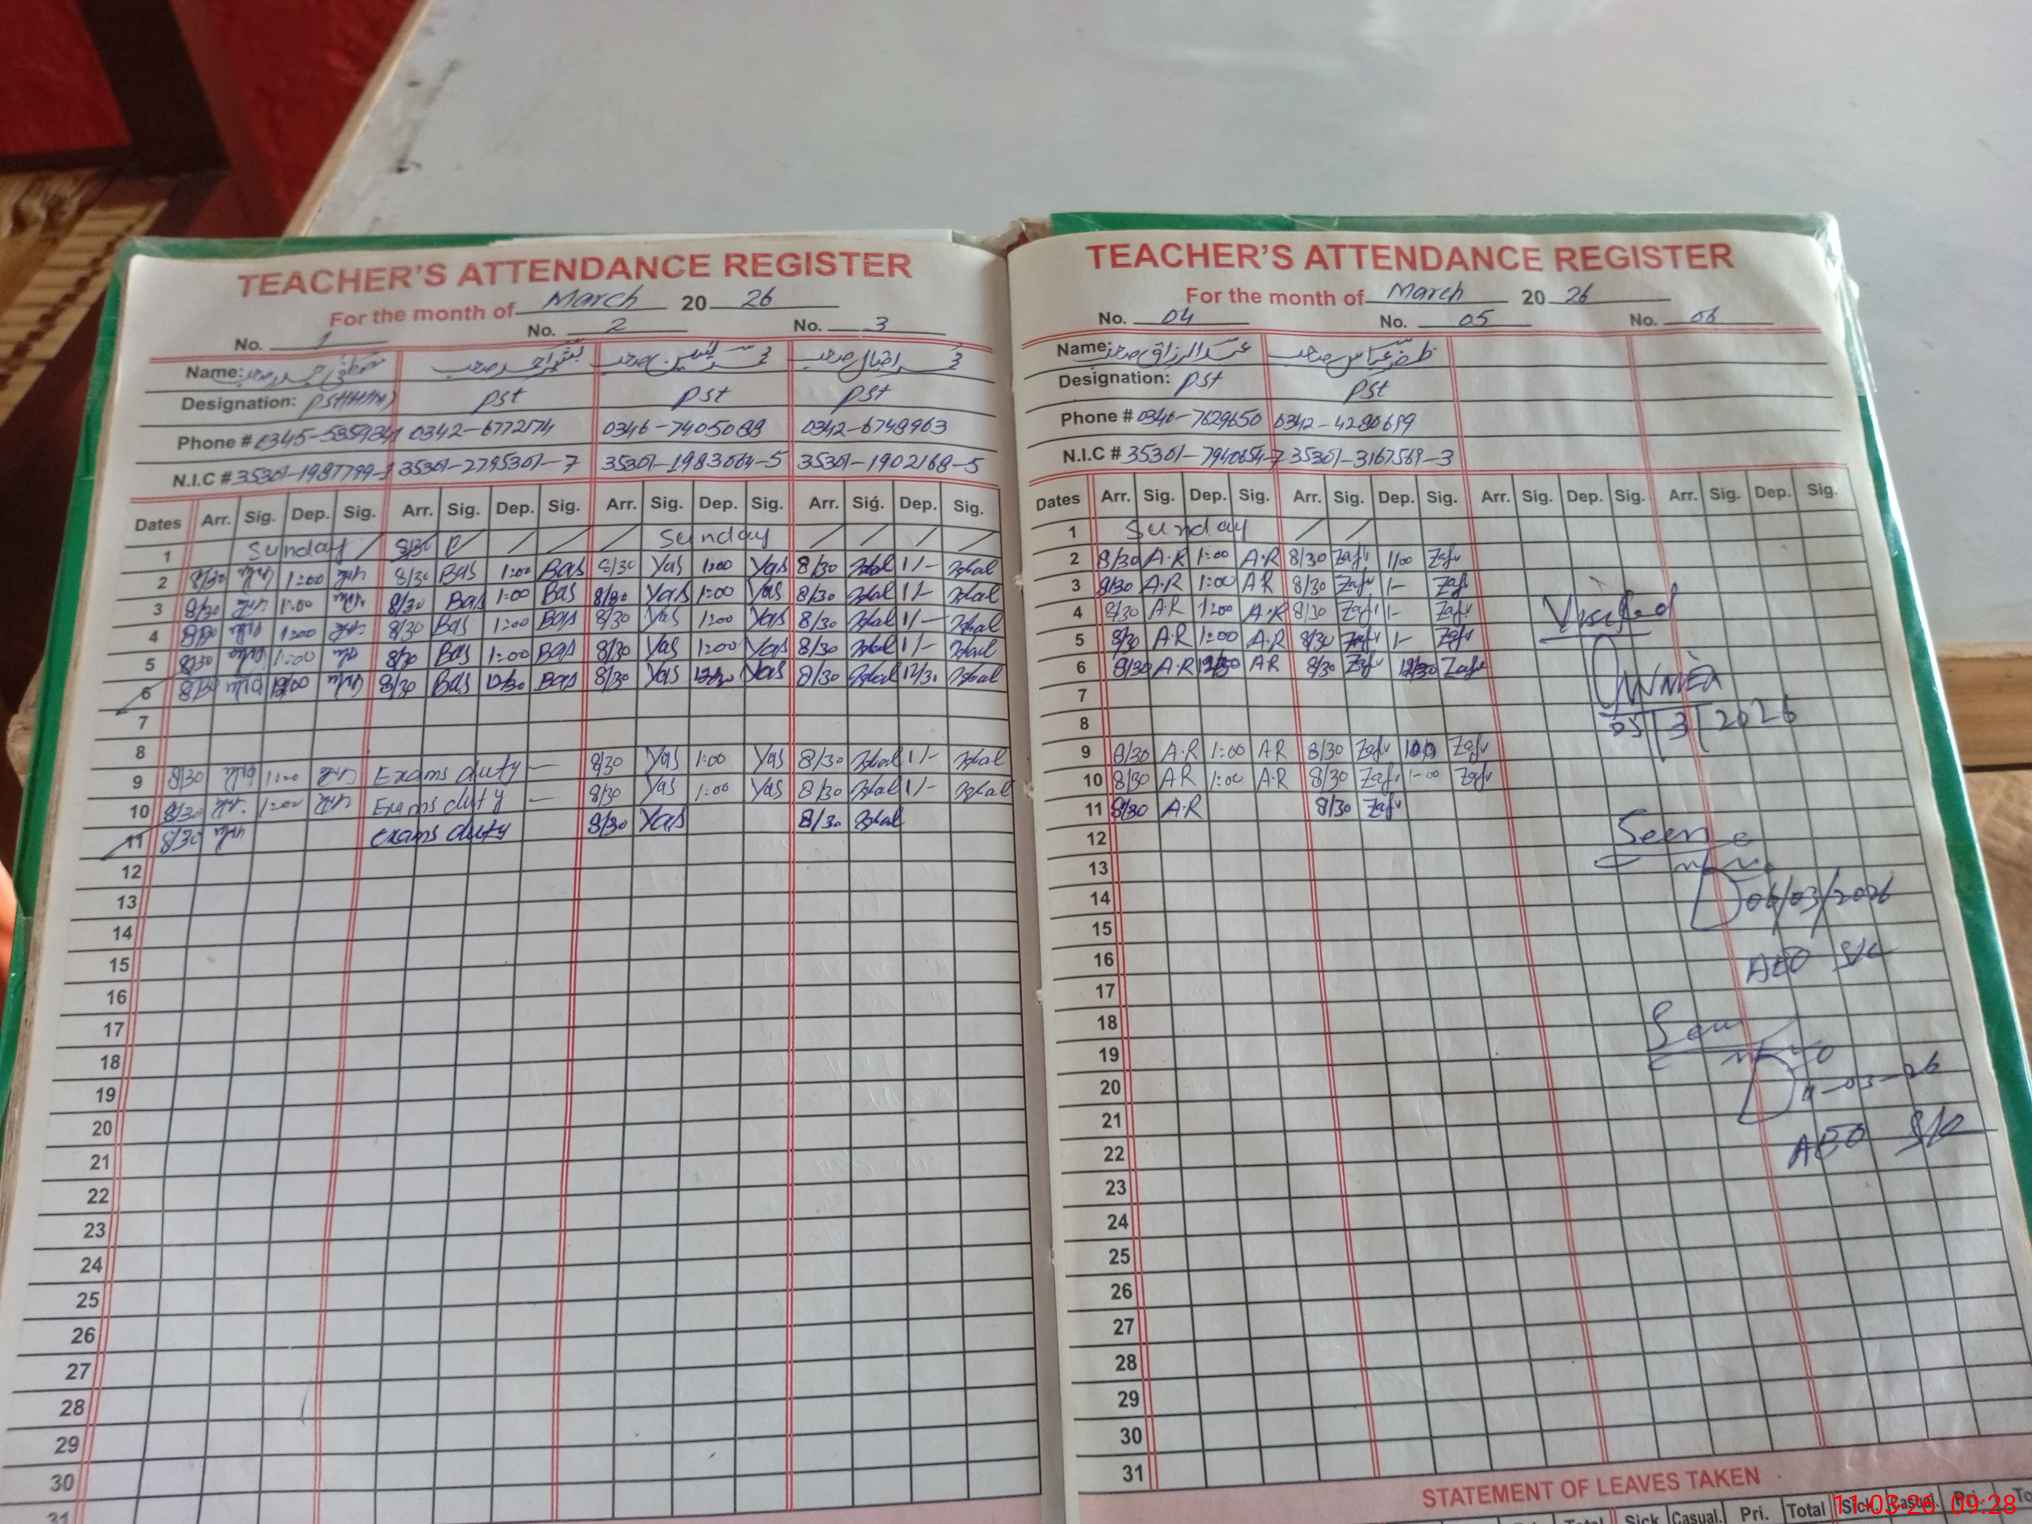 TEACHER'S ATTENDANCE REGISTER
For the month of March 20 26
No. 1 No. 2 No. 3
Name: صاحب بشیر احمد صاحب محمد یٰسین صاحب محمد اقبال صاحب
Designation: PST PST PST PST
Phone # 0342-6772174 0346-7405088 0342-6748963
N.I.C # 35301-2795301-7 35301-1983064-5 35301-1902168-5
Dates Arr. Sig. Dep. Sig. Arr. Sig. Dep. Sig. Arr. Sig. Dep. Sig. Arr. Sig. Dep. Sig.
1 Sunday 8/30 Sunday
2 8/30 1:00 8/30 Bas 1:00 Bas 8/30 Yas 1:00 Yas 8/30 Iqbal 1/- Iqbal
3 8/30 1:00 8/30 Bas 1:00 Bas 8/30 Yas 1:00 Yas 8/30 Iqbal 1/- Iqbal
4 8/30 1:00 8/30 Bas 1:00 Bas 8/30 Yas 1:00 Yas 8/30 Iqbal 1/- Iqbal
5 8/30 1:00 8/30 Bas 1:00 Bas 8/30 Yas 1:00 Yas 8/30 Iqbal 1/- Iqbal
6 8/30 8/30 Bas 12/30 Bas 8/30 Yas 12/30 Yas 8/30 Iqbal Iqbal
7
8
9 8/30 1:00 Exams duty — 8/30 Yas 1:00 Yas 8/30 Iqbal 1/- Iqbal
10 8/30 1:00 Exams duty — 8/30 Yas 1:00 Yas 8/30 Iqbal 1/- Iqbal
11 8/30 exams duty 8/30 Yas 8/30 Iqbal
12
13
14
15
16
17
18
19
20
21
22
23
24
25
26
27
28
29
30
31
TEACHER'S ATTENDANCE REGISTER
For the month of March 20 26
No. 04 No. 05 No. 06
Name: عبدالرزاق صاحب ظفر عباس صاحب
Designation: PST PST
Phone # 0346-7629650 0342-4280699
N.I.C # 35301-3167569-3
Dates Arr. Sig. Dep. Sig. Arr. Sig. Dep. Sig. Arr. Sig. Dep. Sig. Arr. Sig. Dep. Sig.
1 Sunday
2 8/30 A.R 1:00 A.R 8/30 Zafr 1:00 Zafr
3 8/30 A.R 1:00 AR 8/30 Zafr 1- Zafr
4 8/30 AR 1:00 A.R 8/30 Zafr 1- Zafr
5 8/30 A.R 1:00 A.R 8/30 Zafr 1- Zafr
6 8/30 A.R 12/30 AR 8/30 Zafr 12/30 Zafr
7
8
9 8/30 A.R 1:00 AR 8/30 Zafr 1:00 Zafr
10 8/30 AR 1:00 AR 8/30 Zafr 1-00 Zafr
11 8/30 A.R 8/30 Zafr
12
13
14
15
16
17
18
19
20
21
22
23
24
25
26
27
28
29
30
31
Visited
05/3/2026
Seen
06/03/2026
AEO
Seen
11-03-26
AEO
STATEMENT OF LEAVES TAKEN
Total Sick Casual. Pri. Total Sick Casual. Pri.
11-03-26 09:28